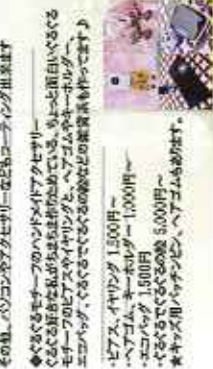 その他、パソコンやアクセサリーなどもコーティング出来ます
◆ぐるぐるモチーフのハンドメイドアクセサリー
ぐるぐる好きな私が
ちょっと面白いぐるぐる
モチーフのピアスやイヤリングと、ヘアゴムやキーホルダー、
エコバッグ、ぐるぐるでぐるぐるの絵などの雑貨を作ってます♪
・ピアス、イヤリング 1,500円~
・ヘアゴム、キーホルダー 1,000円~
・エコバッグ 1,500円
・ぐるぐるでぐるぐるの絵 5,000円~
★キッズ用パッチンピン、ヘアゴムもあります。